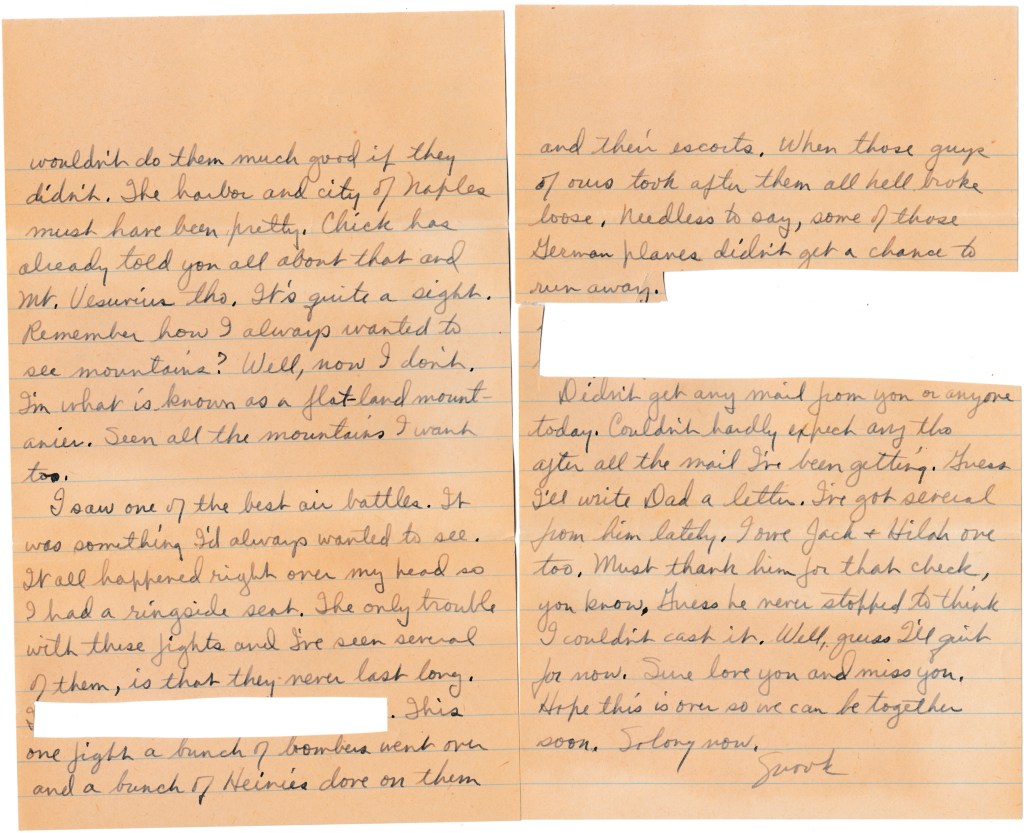 wouldn't do them much good if they
didn't. The harbor and city of Naples
must have been pretty. Chick has
already told you all about that and
Mt. Vesuvius tho. It's quite a sight.
Remember how I always wanted to
see mountains? Well, now I don't.
I'm what is known as a flat-land mount-
anier. Seen all the mountains I want
too.
I saw one of the best air battles. It
was something I'd always wanted to see.
It all happened right over my head so
I had a ringside seat. The only trouble
with these fights and I've seen several
of them, is that they never last long.
. This
one fight a bunch of bombers went over
and a bunch of Heinies dove on them
and their escorts. When those guys
of ours took after them all hell broke
loose. Needless to say, some of those
German planes didn't get a chance to
run away.
Didn't get any mail from you or anyone
today. Couldn't hardly expect any tho
after all the mail I've been getting. Guess
I'll write Dad a letter. I've got several
from him lately. I owe Jack + Hilah one
too. Must thank him for that check,
you know. Guess he never stopped to think
I couldn't cast it. Well, guess I'll quit
for now. Sure love you and miss you.
Hope this is over so we can be together
soon. So long now.